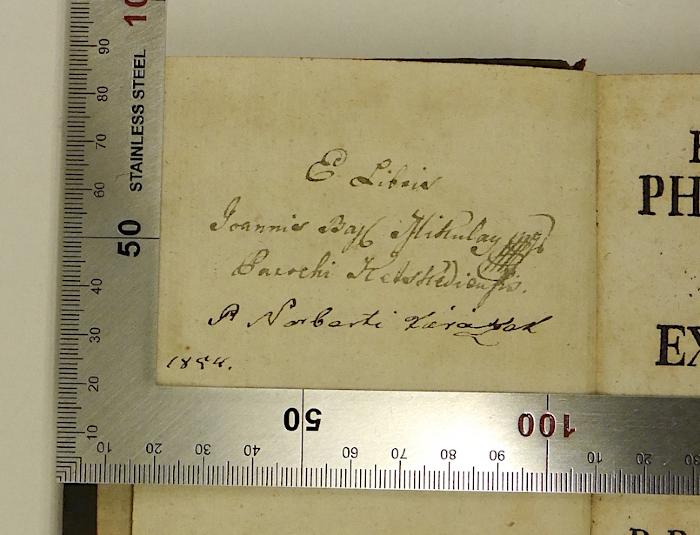 E Libris
Joannis Bap. Mikulay
Parochi Ketskédiensis.
P Norberti
1854.
STAINLESS STEEL
10
90
80
70
60
50
40
30
20
10
10 20 30 40 50 60 70 80 90 100 10 20 30
PH
EX